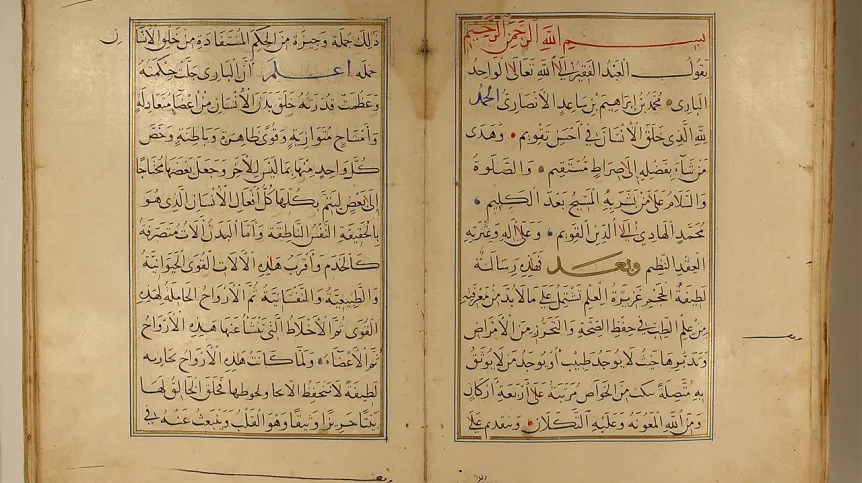 بسم الله الرحمن الرحيم
يقول العبد الفقير الى الله تعالى الواحد
البارى محمد بن ابراهيم بن ساعد الانصارى الحمد
لله الذى خلق الانسان فى احسن تقويم وهدى
من شاء بفضله الى صراط مستقيم والصلوة
والسلام على من بشر به المسيح بعد الكليم
محمد الهادى الى الدين القويم وعلى اله وعترته
العقد النظيم وبعد فهذه رسالة
لطيفة الحجم غزيرة العلم تشتمل على ما لا بد من معرفته
من علم الطب فى حفظ الصحة والتحرز من الامراض
وتدبرها حيث لا يوجد طبيب او يوجد من لا يوثق
به متصلة بنكت من الخواص مرتبة على اربعة اركان
ومن الله المعونه وعليه التكلان ونقدم على
ذلك جملة وجيزة من الحكم المستفادة من خلق الانسا
ن
جمله اعلم ان البارى جلت حكمته
وعظمت قدرته خلق بدن الانسان من اعضا متعادلة
وامشاج متوازية وقوى ظاهرة وباطنة وخص
كل واحد منها بما ليس للاخر وجعل بعضها محتاجا
الى بعض ليتم بكلها كل افعال الانسان الذى هو
بالحقيقة النفس الناطقة واما البدن الات متصرفة
كالخدم واقرب هذه الالات القوى الحيوانية
والطبيعية والنفسانية ثم الارواح الحاملة لهذه
القوى ثم الاخلاط التى تنشأ عنها هذه الارواح
ثم الاعضاء ولما كانت هذه الارواح بخارية
لطيفة لا تنحفظ الا بما يحوطها فخلق الخالق لها
بيتا حريزا وثيقا وهو القلب وينبعث عنه فى